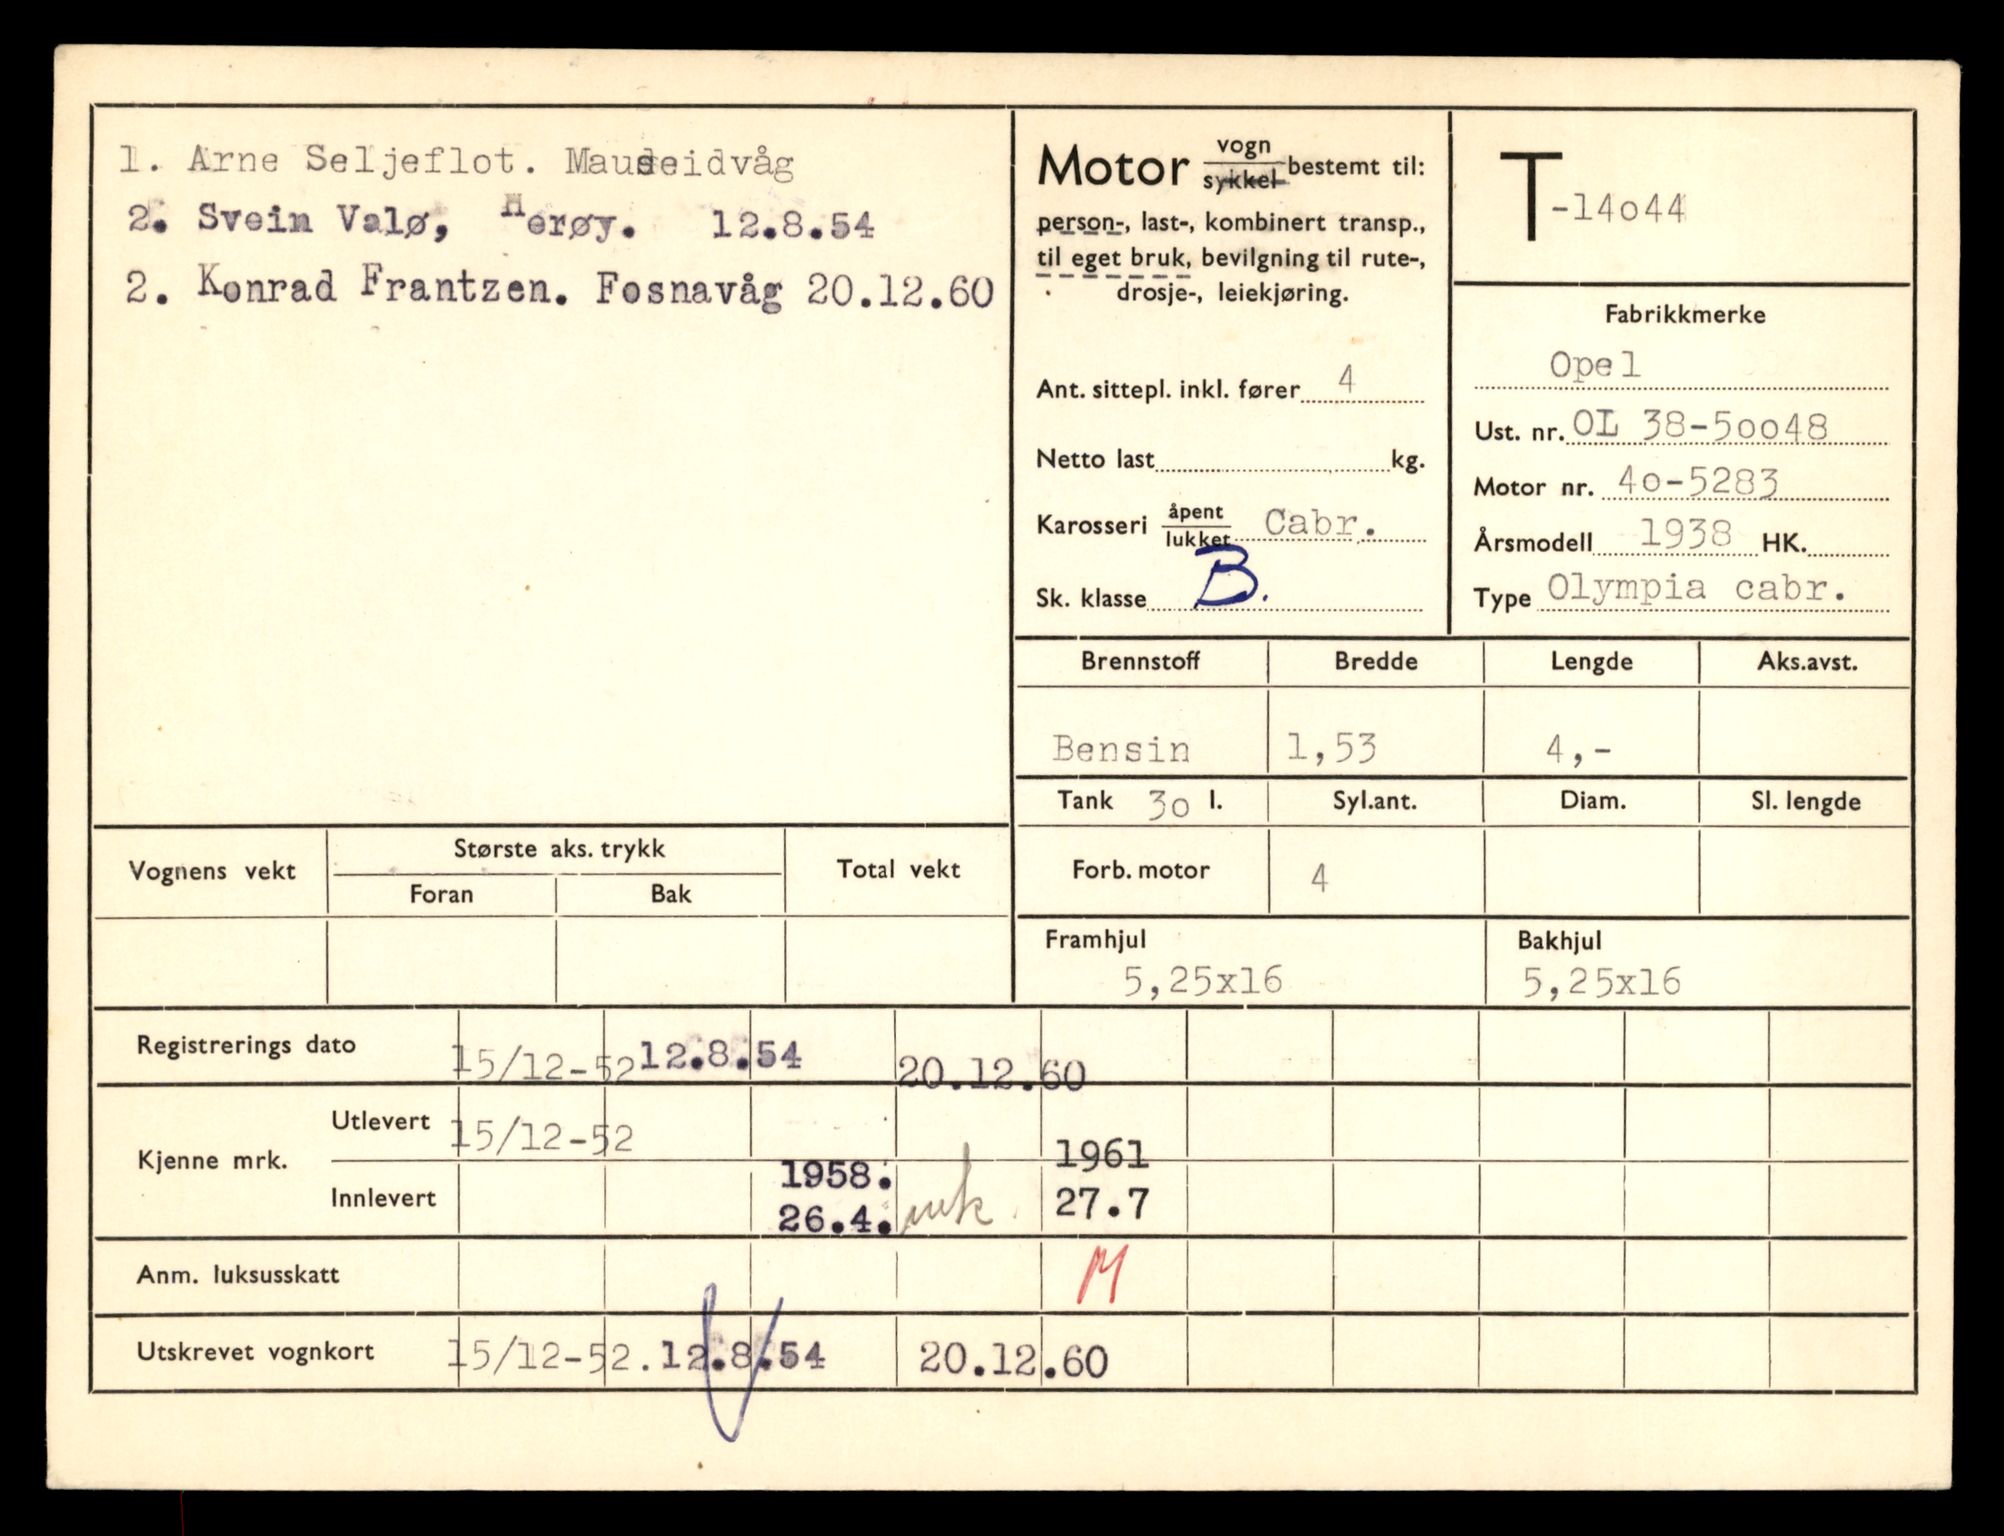 1. Arne Seljeflot. Mauseidvåg
2. Svein Valø, Herøy. 12.8.54
2. Konrad Frantzen. Fosnavåg 20.12.60
Motor vogn
sykkel bestemt til:
person-, last-, kombinert transp.,
til eget bruk, bevilgning til rute-,
drosje-, leiekjøring.
Ant. sittepl. inkl. fører 4
Netto last kg.
Karosseri åpent
lukket Cabr.
Sk. klasse B.
T-14o44
Fabrikkmerke
Opel
Ust. nr. OL 38-5oo48
Motor nr. 4o-5283
Årsmodell 1938 HK.
Type Olympia cabr.
Brennstoff Bredde Lengde Aks.avst.
Bensin 1,53 4,-
Tank 3o l. Syl.ant. Diam. Sl. lengde
Forb. motor 4
Framhjul Bakhjul
5,25x16 5,25x16
Vognens vekt Største aks. trykk Total vekt
Foran Bak
Registrerings dato 15/12-52 12.8.54 20.12.60
Kjenne mrk. Utlevert 15/12-52
1958. 1961
Innlevert 26.4. 27.7
Anm. luksusskatt M
Utskrevet vognkort 15/12-52. 12.8.54 20.12.60